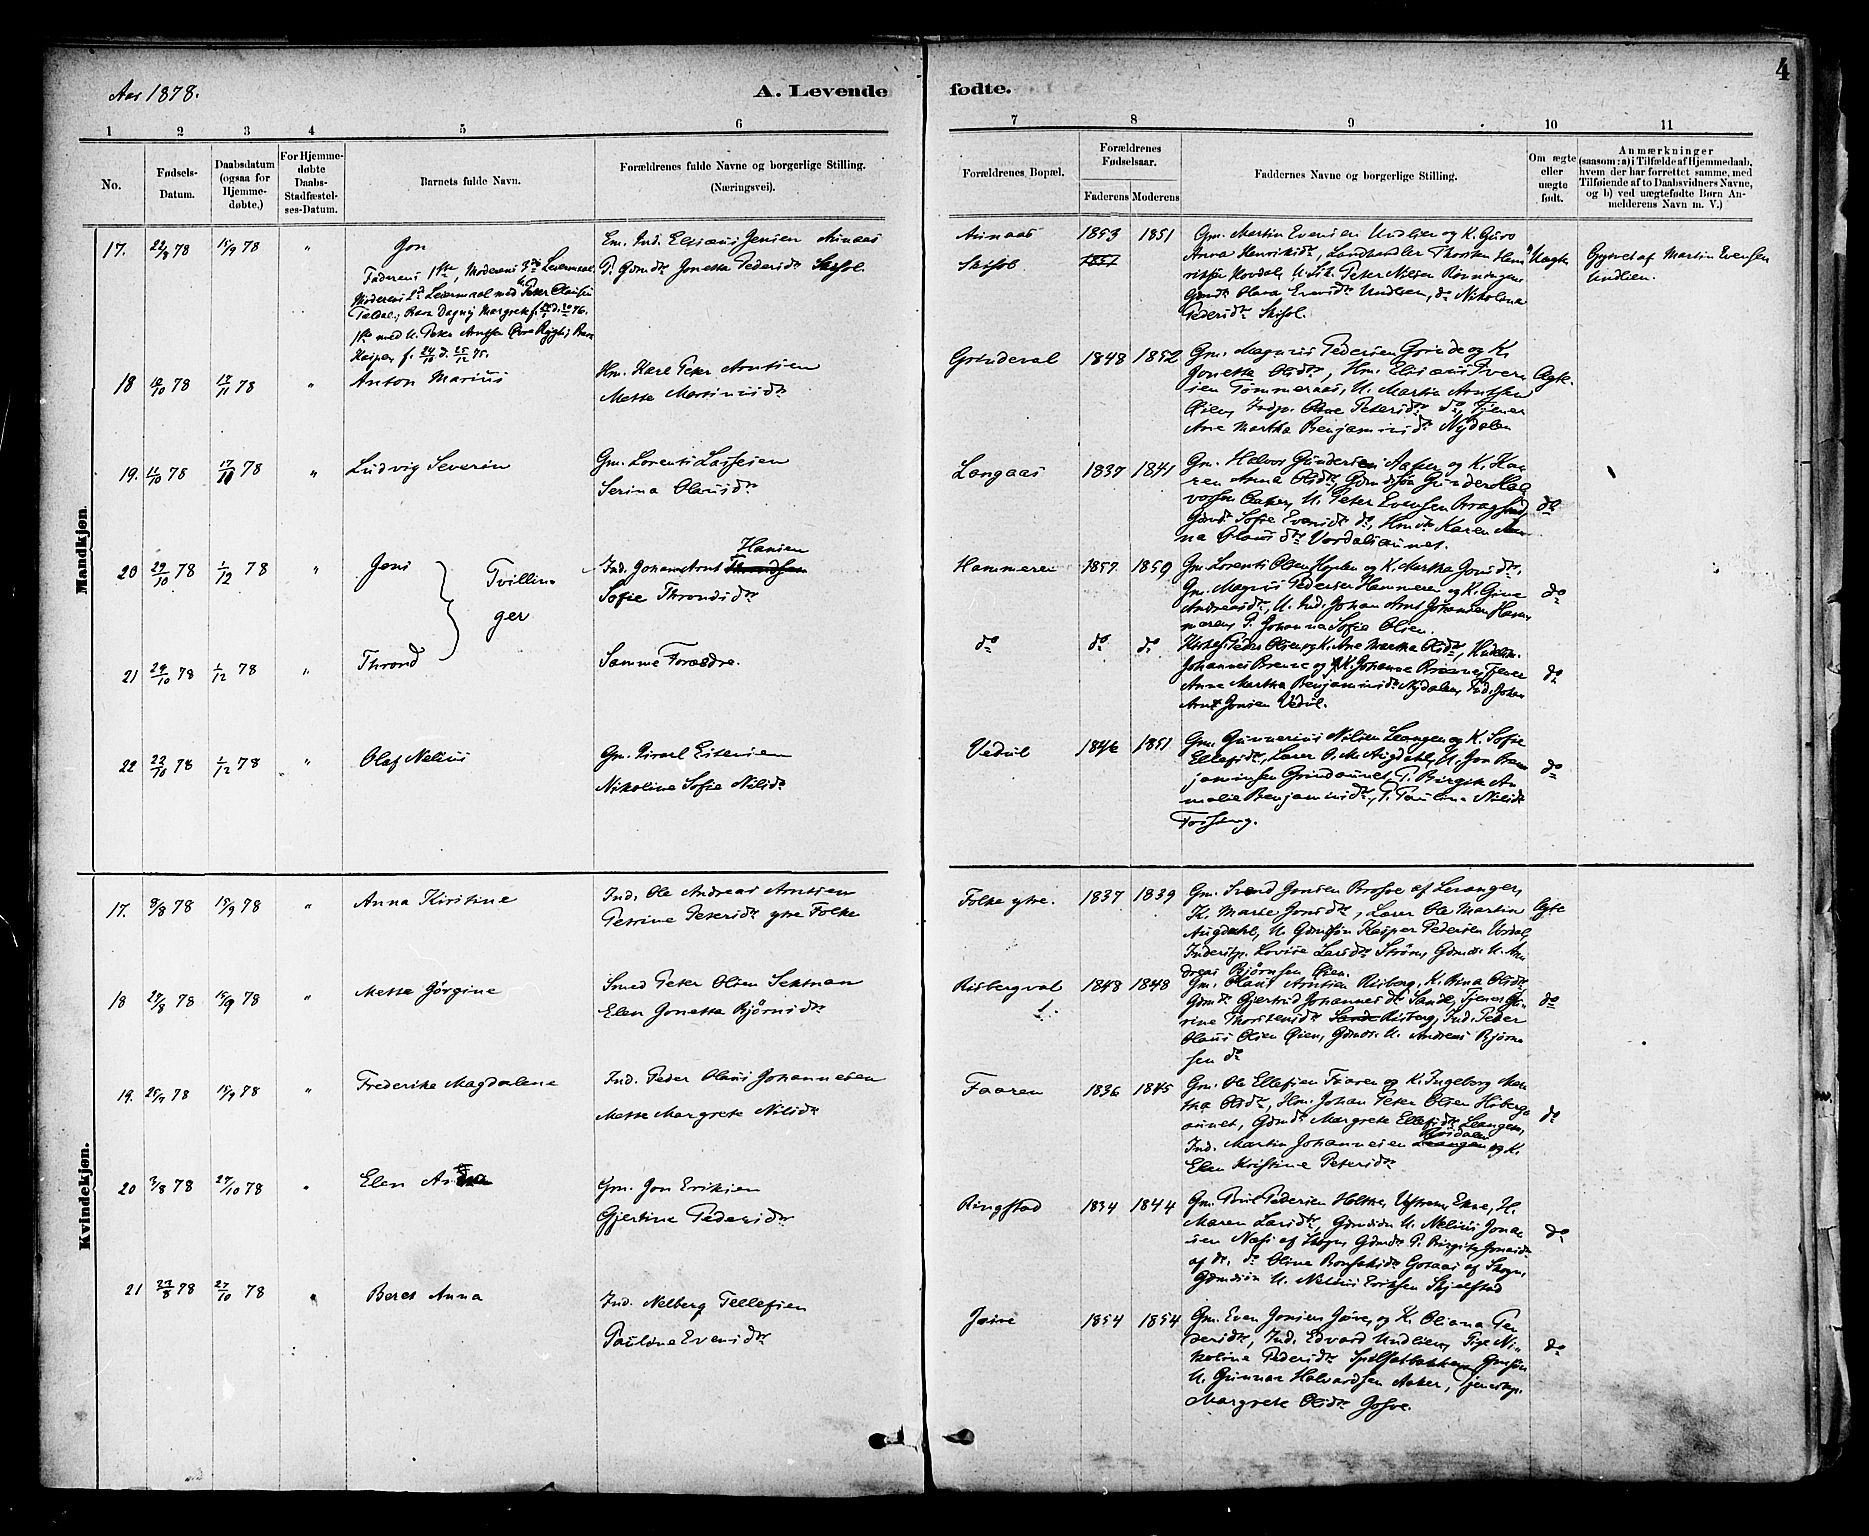 Aar 1878.
A. Levende
fødte.
4
1 2 3 4 5 6 7 8 9 10 11
No.
Fødsels-
Datum.
Daabsdatum
(ogsaa for
Hjemme-
døbte.)
For Hjemme-
døbte
Daabs-
Stadfæstel-
ses-Datum.
Barnets fulde Navn.
Forældrenes fulde Navne og borgerlige Stilling.
(Næringsvei).
Forældrenes Bopæl.
Forældrenes
Fødselsaar.
Faderens Moderens
Faddernes Navne og borgerlige Stilling.
Om ægte
eller
uægte
født.
Anmærkninger
(saasom: a) i Tilfælde af Hjemmedaab,
hvem der har forrettet samme, med
Tilføiende af to Daabsvidners Navne,
og b) ved uægtefødte Børn An-
melderens Navn m. V.)
Mandkjøn.
17. 22/8 78 15/9 78 " Jon
Faderens 1ste, Moderens 3die Leiermaal.
Moderens 2det Leiermaal med Peter Olausen
Barn Dagny Margrete
1ste med U. Peter Arntsen Øvre Barn
Kasper f. 24/10 d. 25/12 75.
Em. Ind. Elisæus Jensen Aunaas
P. Gdmdr. Jonetta Pedersdr. Skisol.
Aunaas 1853 1851
Skisol 1851
Gm. Martin Evensen Undlien og K. Guro
Anna Henriksdr., Landhandler Thorsten Hen
riksen Hovdal, U. Peter Nilsen Rönningen
Gdmdr. Olava Evensdr. Undlien, do Nikolina
Pedersdr. Skisol.
Uægte
Opgivet af Martin Evensen
Undlien.
18 18/11 78 " Anton Marius
Hm. Karl Peter Arntsen
Mette Martinusdr.
Grindeval 1848 1852
Gm. Magnus Pedersen Grinde og K.
Jonetta Olsdr., Hm. Elisæus Iver
sen Tømmeraas, U. Martin Arntsen
Öien, Indp. Oline Petersdr. do, Tjener
Ane Martha Benjaminsdr. Nydalen
Ægte.
19. 11/10 78 17/11 78 " Ludvig Severin
Gm. Lorents Lassesen
Serina Olausdr.
Langaas 1837 1841
Gm. Halvor Gundersen Aaker og K. Ka
ren Anna Olsdr., Gdmdsøn Gunder Hal
vorsen Aaker, U. Peter Evensen
Gdmdr. Sofie Evensdr. do, Hmdr. Karen An
na Olausdr. Vordalsaunet.
do
20 29/10 78 1/12 78 " Jens
Tvillin
ger
Ind. Johan Arnt Throndsen Hansen
Sofie Throndsdr.
Hammeren 1857 1859
Gm. Lorents Olsen Hojlen og K. Martha Jonsdr.
Gm. Magnus Pedersen Hammeren og K. Gine
Andreasdr., U. Ind. Johan Arnt Johansen Ham
meren, P. Johanna Sofie Olsen.
do
21 29/10 78 1/12 78 " Thrond
Samme Forældre.
do do do
Peder Olsen og K. Ane Martha Olsdr.,
Johannes Brenne og K. Johanna Brenne, Tjener
Anne Martha Benjaminsdr. Nydalen, Ind. Johan
Arnt Jonsen Vedul.
do
22 22/10 78 1/12 78 " Olaf Nelius
Gm. Sivert Estensen
Nikoline Sofie Nilsdr.
Vedul 1846 1851
Gm. Gunnerius Nilsen Leangen og K. Sofie
Ellefsdr., Lærer O. M. Augdahl, U. Jon Ben
jaminsen Grindaunet, P. Birgitte A
malie Benjaminsdr., P. Pauline Nilsdr.
Fossberg.
do
Kvindekjøn.
17. 8/8 78 15/9 78 " Anna Kirstine
Ind. Ole Andreas Arntsen
Petrine Petersdr. ytre Folke
Folke ytre. 1837 1839
Gm. Svend Jonsen Brosve af Levanger,
K. Marte Jonsdr., Lærer Ole Martin
Augdahl, U. Gdmdsøn Kasper Pedersen Vordal,
Inderstp. Lovise Larsdr. Strøm, Gdmds. U. An
dreas Bjørnsen Øien.
Ægte
18 27/8 78 15/9 78 " Mette Jörgine
Smed Peter Olsen Sektnan
Elen Jonetta Bjørnsdr.
Risbergval 1848 1848
Gm. Olaus Arntsen Risberg, K. Rina Olsdr.
Gdmdr. Gjertrud Johannesdr. Sande, Tjener
rine Thorstensdr. Sande Risberg, Ind. Peder
Olaus Olsen Øien, Gdmds. U. Andreas Bjørn
sen do
do
19. 78 15/9 78 " Frederike Magdalene
Ind. Peder Olaus Johannesen
Mette Margrete Nilsdr.
Faaren 1836 1845
Gm. Ole Ellefsen Faaren og K. Ingeborg Mar
tha Olsdr., Hm. Johan Peter Olsen Hoberg
aunet, Gdmdr. Margrete Ellefsdr. Leangen,
Ind. Martin Johannesen Leangen og K.
Elen Kristine Petersdr.
do
20 3/8 78 27/10 78 " Elen
Gm. Jon Eriksen
Gjertine Pedersdr.
Ringstad 1834 1844
Gm. Poul Pedersen Holte, Ekne, K.
Maren Larsdr., Gdmdsøn U. Nelius Jona
sen Næss af Skogn, Gdmdr. P. Birgitte Jonasdr.
af do. do Oline Gotaas af Skogn,
Gdmdsön U. Nelius Eriksen Skjelstad
do
21 27/8 78 27/10 78 " Beret Anna
Ind. Nelberg Tellefsen
Pauline Evensdr.
Jøsve 1854 1854
Gm. Even Jonsen Jøsve, og K. Oliana Pe
dersdr., Ind. Edvard Undlien, Pige Ni-
koline Pedersdr. Gmsøn
U. Gunnar Halvardsen Aaker, Tjenestep.
Margrete Olsdr. Jøsve.
do